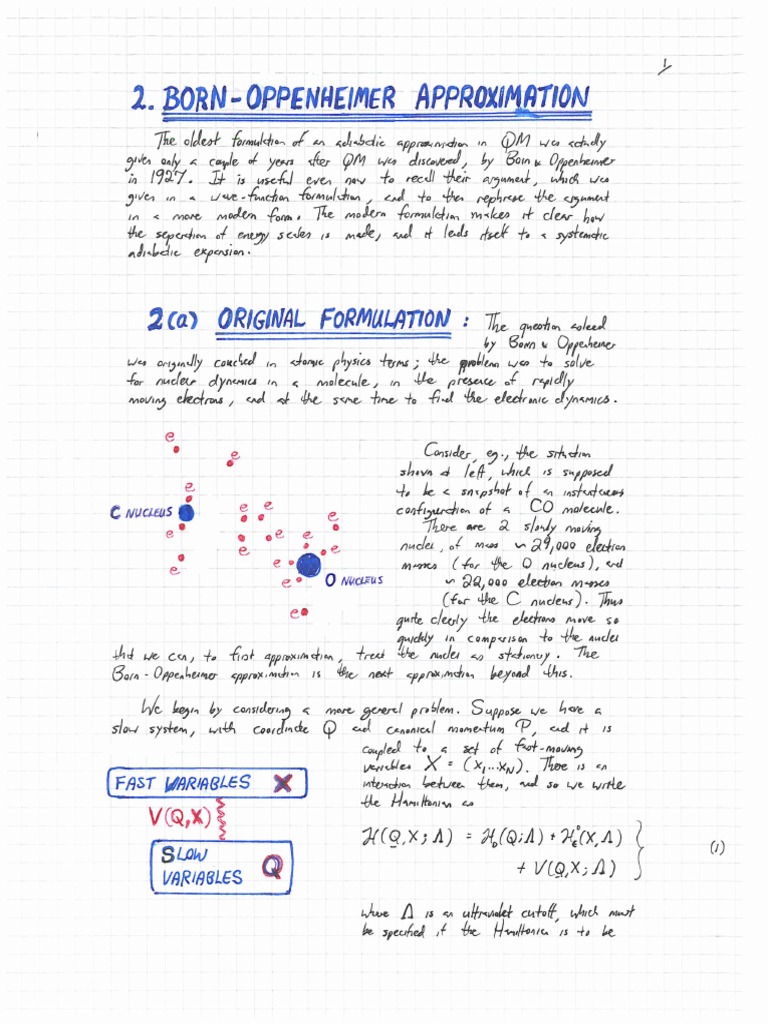 1
2. BORN-OPPENHEIMER APPROXIMATION
The oldest formulation of an adiabatic approximation in QM was actually
given only a couple of years after QM was discovered, by Born & Oppenheimer
in 1927. It is useful even now to recall their argument, which was
given in a wave-function formulation, and to then rephrase the argument
in a more modern form. The modern formulation makes it clear how
the separation of energy scales is made, and it lends itself to a systematic
adiabatic expansion.
2(a) ORIGINAL FORMULATION : The question asked
by Born & Oppenheimer
was originally couched in atomic physics terms; the problem was to solve
for nuclear dynamics in a molecule, in the presence of rapidly
moving electrons, and at the same time to find the electronic dynamics.
e
e
e
C NUCLEUS
e
e
e
e
e
e
e
e
e
e
O NUCLEUS
e
Consider, eg., the situation
shown at left, which is supposed
to be a snapshot of an instantaneous
configuration of a CO molecule.
There are 2 slowly moving
nuclei, of mass ~ 29,000 electron
masses (for the O nucleus), and
~ 22,000 electron masses
(for the C nucleus). Thus
quite clearly the electrons move so
quickly in comparison to the nuclei
that we can, to first approximation, treat the nuclei as stationary. The
Born-Oppenheimer approximation is the next approximation beyond this.
We begin by considering a more general problem. Suppose we have a
slow system, with coordinate Q and canonical momentum P, and it is
coupled to a set of fast-moving
variables X = (x₁...x_N). There is an
interaction between them, and so we write
the Hamiltonian as
FAST VARIABLES X
V(Q,X)
SLOW
VARIABLES Q
H(Q,X;Λ) = H₀(Q;Λ) + Hₑ⁰(X,Λ)
+ V(Q,X;Λ) } (1)
where Λ is an ultraviolet cutoff, which must
be specified if the Hamiltonian is to be